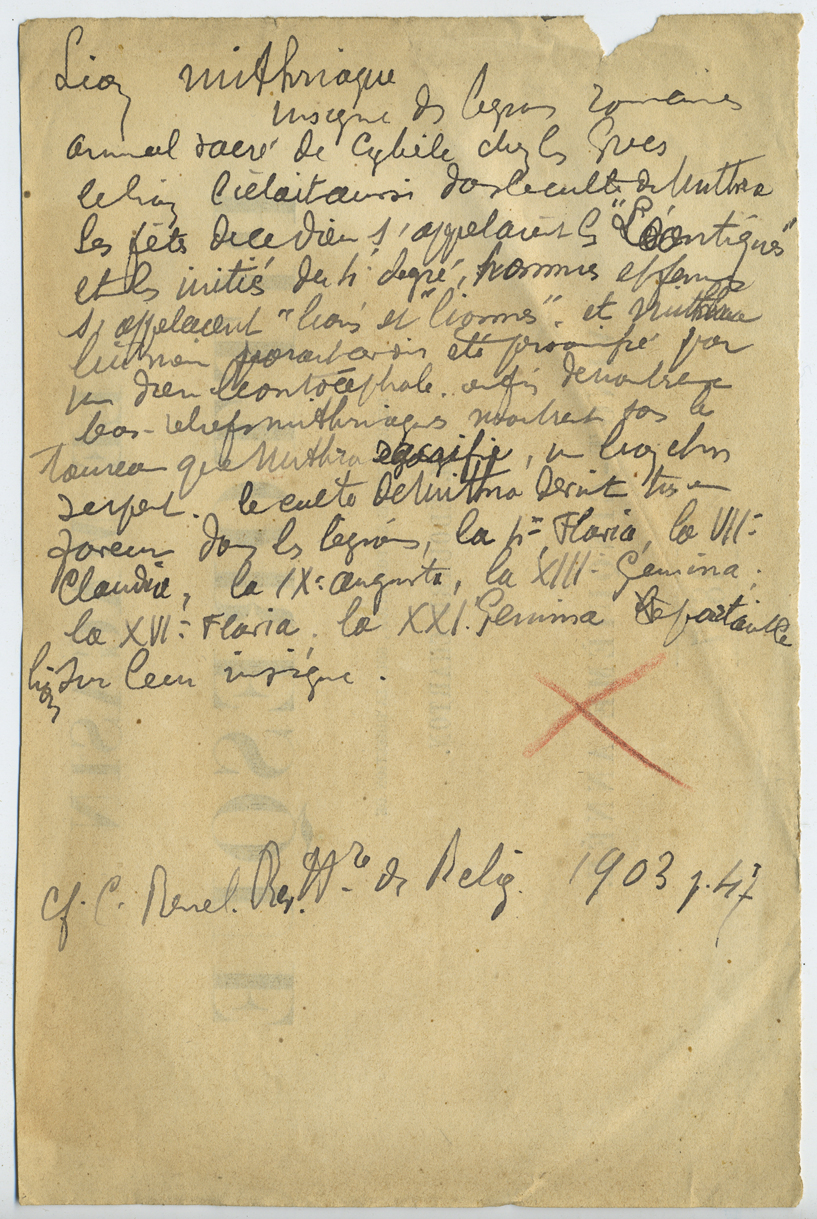 Lion mithriaque
Insigne des légions romaines
animal sacré de Cybèle chez les Grecs
le lion l'était aussi dans le culte de Mithra
les fêtes de ce dieu s'appelaient les "Léontiques"
et les initiés du 4e degré, hommes et femmes
s'appelaient "lions et "lionnes". et Mithra
lui même paraît avoir été personnifié par
un dieu léontocéphale. enfin de nombreux
bas-reliefs mithriaques montrent sous le
taureau que Mithra sacrifie, un lion et un
serpent. le culte de Mithra devint très en
faveur dans les légions, la 4e Flavia, la VIIe
Claudia, la IXe augusta, la XIIIe Gemina,
la XVIe Flavia. la XXI. Gemina portait le
lion sur leur insigne.
cf. C. Renel. Rev. Hre de Relig. 1903 p. 47